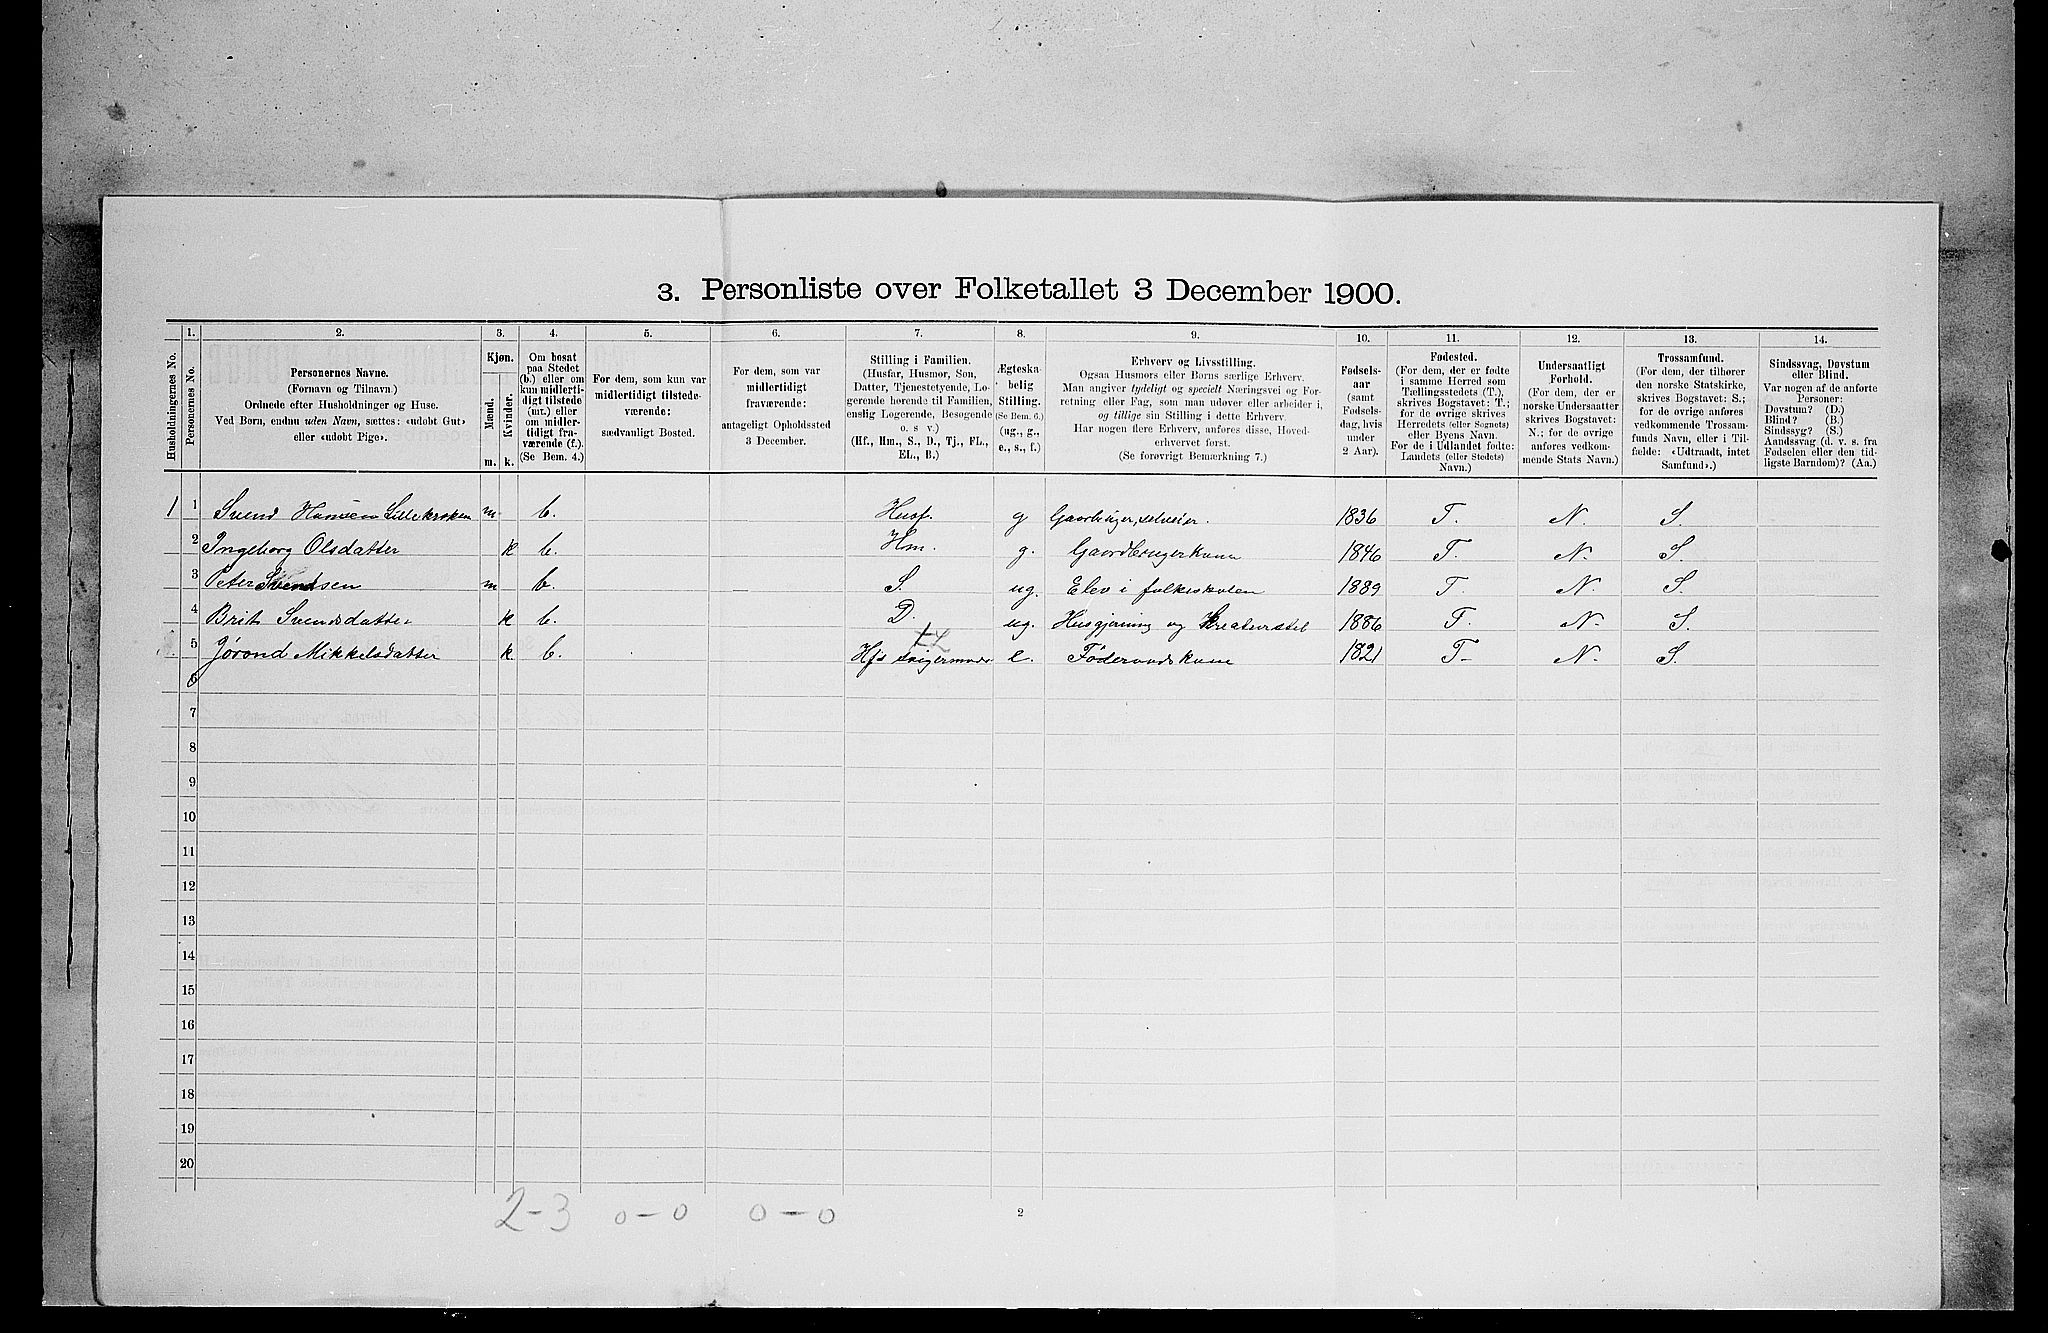 3. Personliste over Folketallet 3 December 1900.
Husholdningernes No.
1. Personernes No.
2. Personernes Navne.
(Fornavn og Tilnavn.)
Ordnede efter Husholdninger og Huse.
Ved Børn, endnu uden Navn, sættes: «udøbt Gut»
eller «udøbt Pige».
3. Kjøn.
Mænd. m.
Kvinder. k.
4. Om bosat
paa Stedet
(b.) eller om
kun midlerti-
digt tilstede
(mt.) eller
om midler-
tidigt fra-
værende (f.).
(Se Bem. 4.)
5. For dem, som kun var
midlertidigt tilstede-
værende:
sædvanligt Bosted.
6. For dem, som var
midlertidigt
fraværende:
antageligt Opholdssted
3 December.
7. Stilling i Familien.
(Husfar, Husmor, Søn,
Datter, Tjenestetyende, Lo-
gerende hørende til Familien,
enslig Logerende, Besøgende
o. s v.)
(Hf., Hm., S., D., Tj., FL.,
EL., B.)
8. Ægteska-
belig
Stilling.
(Se Bem. 6.)
(ug., g.,
e., s., f.)
9. Erhverv og Livsstilling.
Ogsaa Husmors eller Børns særlige Erhverv.
Man angiver tydeligt og specielt Næringsvei og For-
retning eller Fag, som man udøver eller arbeider i,
og tillige sin Stilling i dette Erhverv.
Har nogen flere Erhverv, anføres disse, Hoved-
erhvervet først.
(Se forøvrigt Bemærkning 7.)
10. Fødsels-
aar
(samt
Fødsels-
dag, hvis
under
2 Aar).
11. Fødested.
(For dem, der er fødte
i samme Herred som
Tællingsstedets (T.),
skrives Bogstavet: T.;
for de øvrige skrives
Herredets (eller Sognets)
eller Byens Navn.
For de i Udlandet fødte:
Landets (eller Stedets)
Navn.)
12. Undersaatligt
Forhold.
(For dem, der er
norske Undersaatter
skrives Bogstavet:
N.; for de øvrige
anføres vedkom-
mende Stats Navn.)
13. Trossamfund.
(For dem, der tilhører
den norske Statskirke,
skrives Bogstavet: S.;
for de øvrige anføres
vedkommende Trossam-
funds Navn, eller i Til-
fælde: «Udtraadt, intet
Samfund».)
14. Sindssvag, Døvstum
eller Blind.
Var nogen af de anførte
Personer:
Døvstum? (D.)
Blind? (B.)
Sindssyg? (S.)
Aandssvag (d. v. s. fra
Fødselen eller den tid-
ligste Barndom)? (Aa.)
1 1 Svend Hansen Lillekroken m b. Husf. g Gaardbruger, selveier. 1836 T. N. S.
2 Ingeborg Olsdatter k b. Hm. g. Gaardbrugerkone 1846 T. N. S.
3 Peter Svendsen m b. S. ug. Elev i folkeskolen 1889 T. N. S.
4 Brit Svendsdatter k b. D. ug. Husgjerning og Kreaturstel 1886 T. N. S.
5 Jørond Mikkelsdatter k. b. Hfs svigermoder e. Føderaadskone 1821 T. N. S.
6
7
8
9
10
11
12
13
14
15
16
17
18
19
20
2-3 0-0 0-0
2